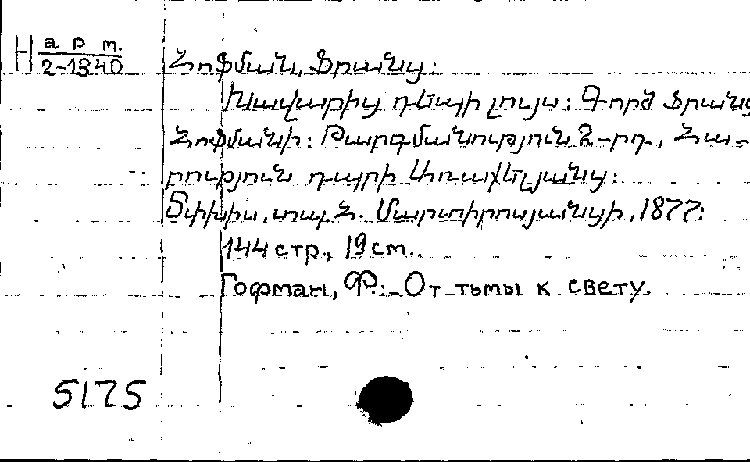 Н арт.
2-1340
Հոֆման, Ֆրանց:
Խաւարից դէպի լոյս: Գործ Ֆրանց
Հոֆմանի: Թարգմանութիւն 2-րդ, Հա-
րութիւն դպրի Առաքելյանց:
Տփխիս, տպ. Հ. Մարտիրոսյանցի, 1877:
144 стр., 19 см.
Гофман, Ф.: От тьмы к свету.
5175